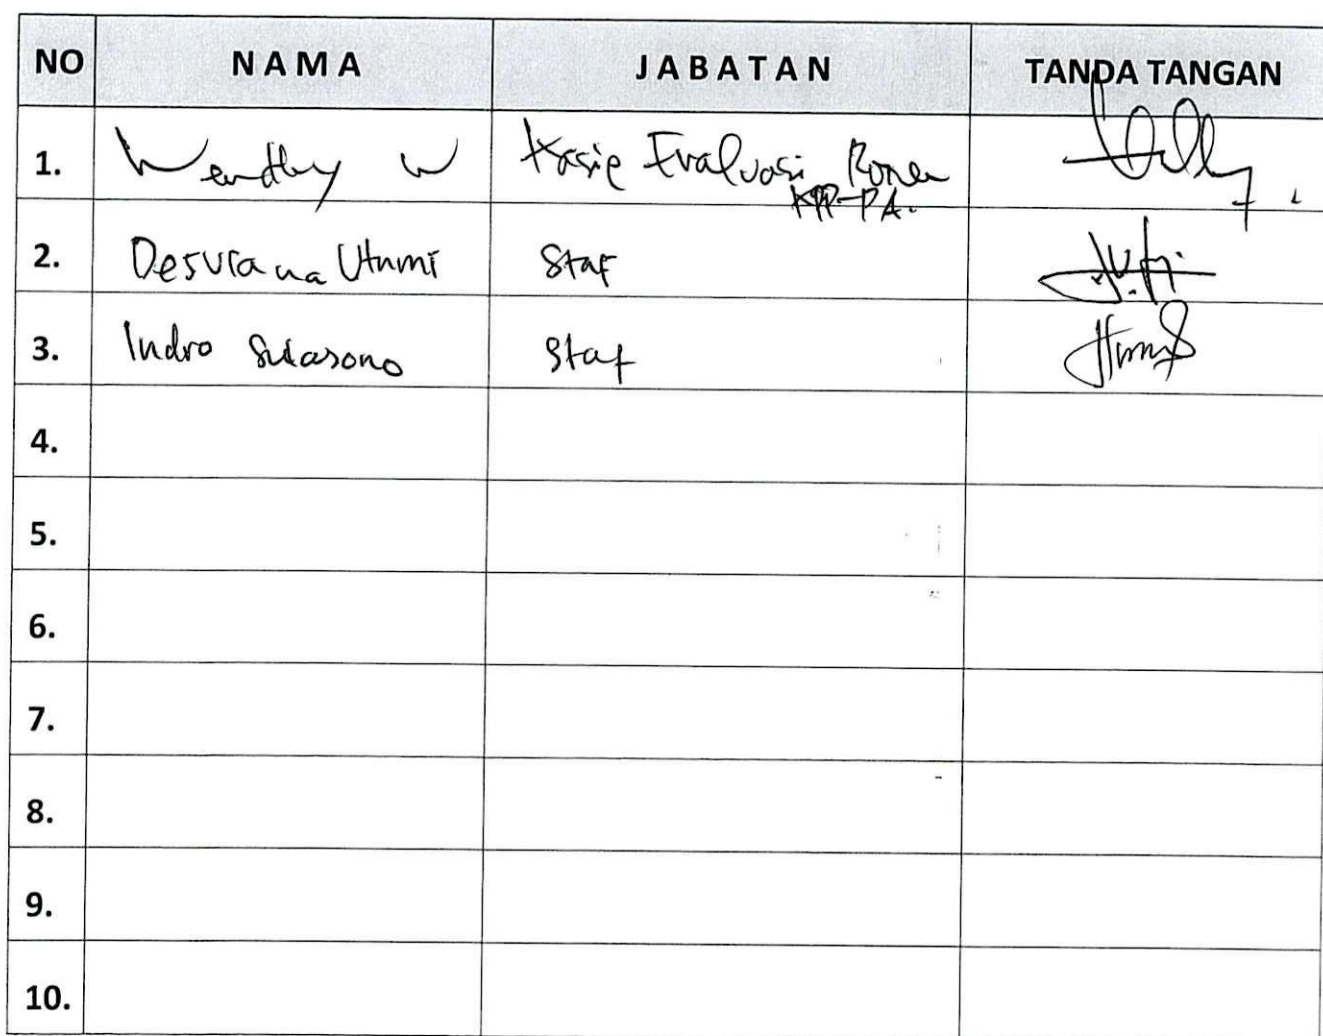 NO NAMA JABATAN TANDA TANGAN
1. Wendhy W Kasie Evaluasi Roren
KPP-PA.
2. Desviana Utami Staf
3. Indro Staf
4.
5.
6.
7.
8.
9.
10.